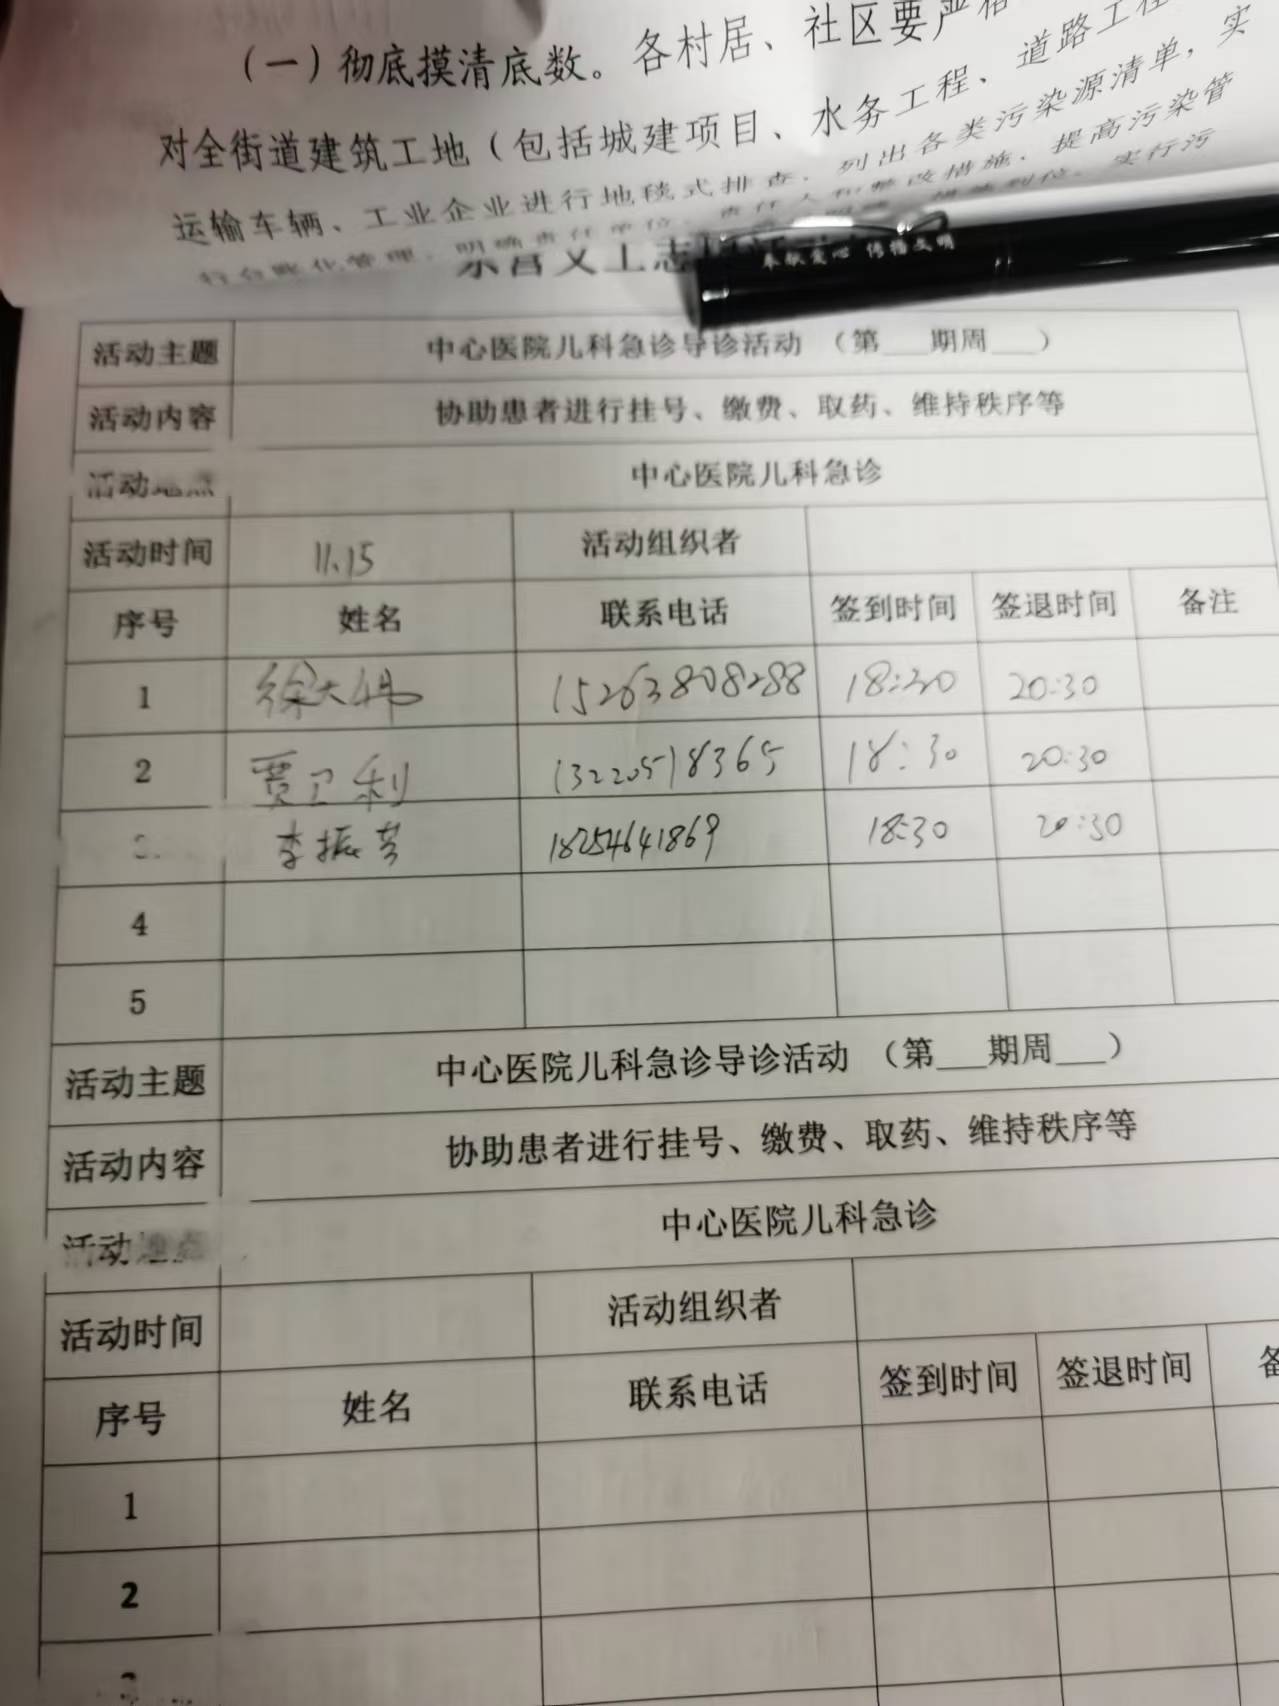 （一）彻底摸清底数。各村居、社区要严格
对全街道建筑工地（包括城建项目、水务工程、道路工程
运输车辆、工业企业进行地毯式排查，列出各类污染源清单，实
行台账化管理，明确责任单位、责任人和整改措施，提高污染管
实行污
东营义工志
奉献爱心 传播文明
活动主题 中心医院儿科急诊导诊活动 （第___期周___）
活动内容 协助患者进行挂号、缴费、取药、维持秩序等
活动地点 中心医院儿科急诊
活动时间 11.15 活动组织者
序号 姓名 联系电话 签到时间 签退时间 备注
1 徐大伟 15263808288 18:30 20:30
2 贾卫利 13220518365 18:30 20:30
3 李振芳 18254641869 18:30 20:30
4
5
活动主题 中心医院儿科急诊导诊活动 （第___期周___）
活动内容 协助患者进行挂号、缴费、取药、维持秩序等
活动地点 中心医院儿科急诊
活动时间 活动组织者
序号 姓名 联系电话 签到时间 签退时间 备
1
2
3